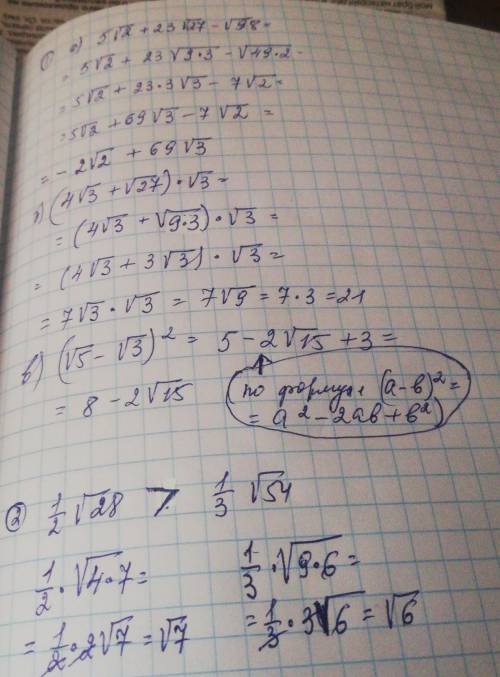 ① а) 5√2 + 23√27 - √98 =
= 5√2 + 23√9·3 - √49·2 =
= 5√2 + 23·3√3 - 7√2 =
= 5√2 + 69√3 - 7√2 =
= -2√2 + 69√3
б) (4√3 + √27)·√3 =
= (4√3 + √9·3)·√3 =
= (4√3 + 3√3)·√3 =
= 7√3·√3 = 7√9 = 7·3 = 21
в) (√5 - √3)² = 5 - 2√15 + 3 =
= 8 - 2√15
(по формуле (а-в)² =
= а² - 2ав + в²)
② 1/2 √28 > 1/3 √54
1/2 · √4·7 =
= 1/2 · 2√7 = √7
1/3 · √9·6 =
= 1/3 · 3√6 = √6